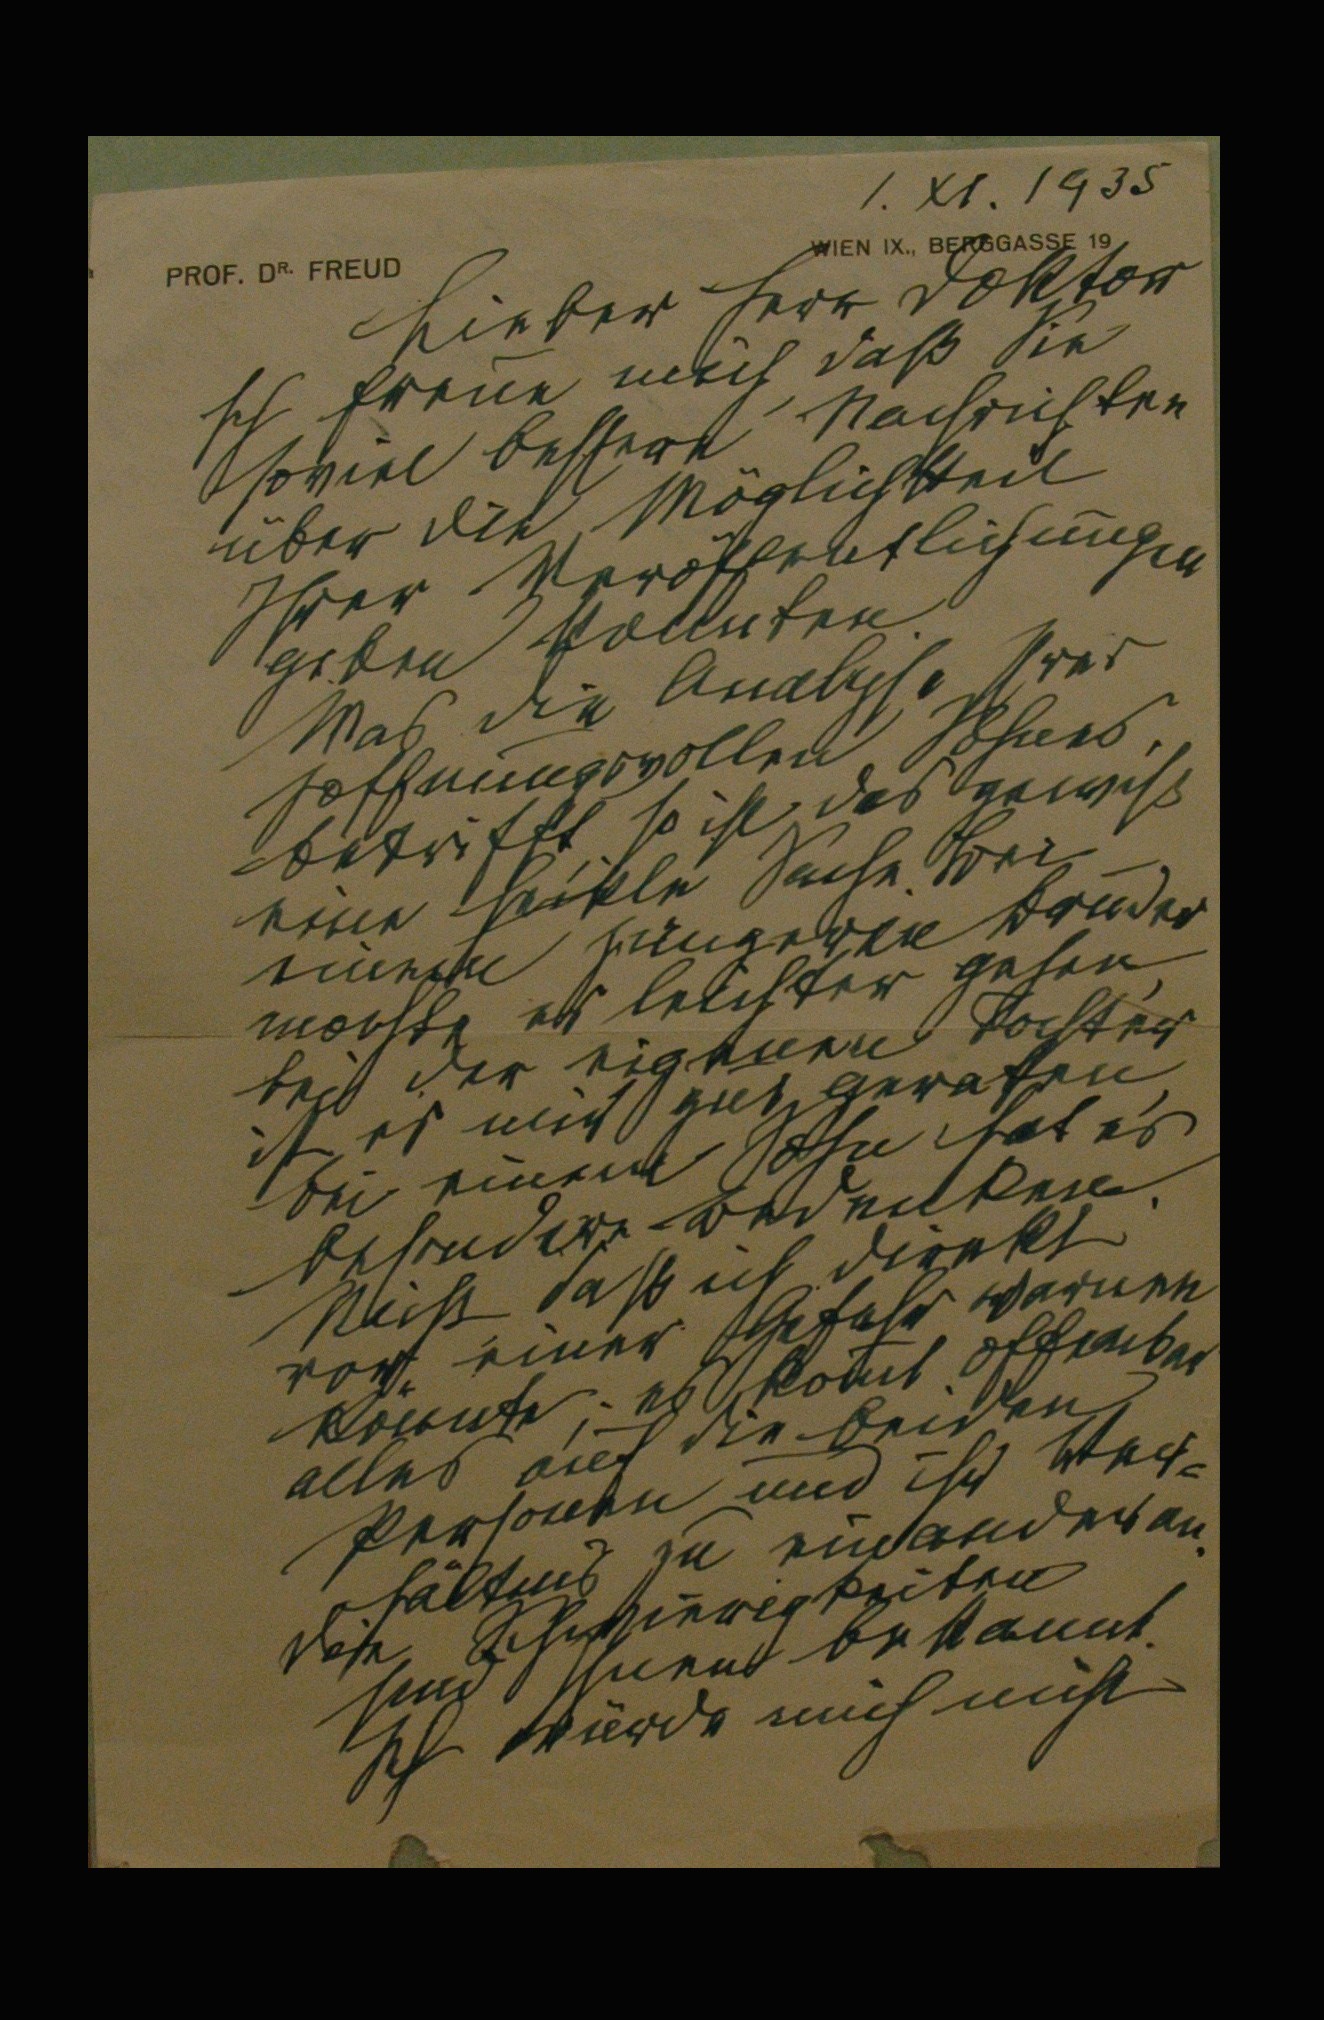 1. XI. 1935
PROF. DR. FREUD
WIEN IX., BERGGASSE 19
Lieber Herr Doktor
Ich freue mich daß Sie
soviel bessere Nachrichten
über die Möglichkeit
Ihrer Veröffentlichungen
geben konnten.
Was die Analyse Ihres
hoffnungsvollen Sohnes
betrifft, so ist das gewiß
eine heikle Sache. Bei
einem jüngeren Bruder
mochte es leichter gehen,
bei der eigenen Tochter
ist es mir gut geraten,
bei einem Sohn hat es
besondere Bedenken.
Nicht daß ich direkt
vor einer Gefahr warnen
könnte; es kom̄t offenbar
alles auf die beiden
Personen und ihr Ver-
hältnis zu einander an.
Die Schwierigkeiten
sind Ihnen bekannt.
Ich würde mich nicht